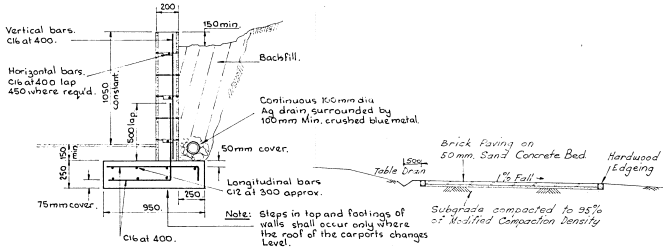 200
150 min.
Vertical bars.
C16 at 400.
Backfill.
Horizontal bars.
C16 at 400 lap
450 where requ'd.
1050
constant.
Continuous 100mm dia
Ag drain surrounded by
100mm Min. crushed bluemetal.
500 lap
150
min.
50mm cover.
250
Longitudinal bars
C12 at 300 approx.
250
75mm cover.
950.
C16 at 400.
Note: Steps in top and footings of
walls shall occur only where
the roof of the carports changes
Level.
Brick Paving on
50mm. Sand Concrete Bed.
Hardwood
Edgeing
500
Table Drain
1% Fall
Subgrade compacted to 95%
of Modified Compaction Density